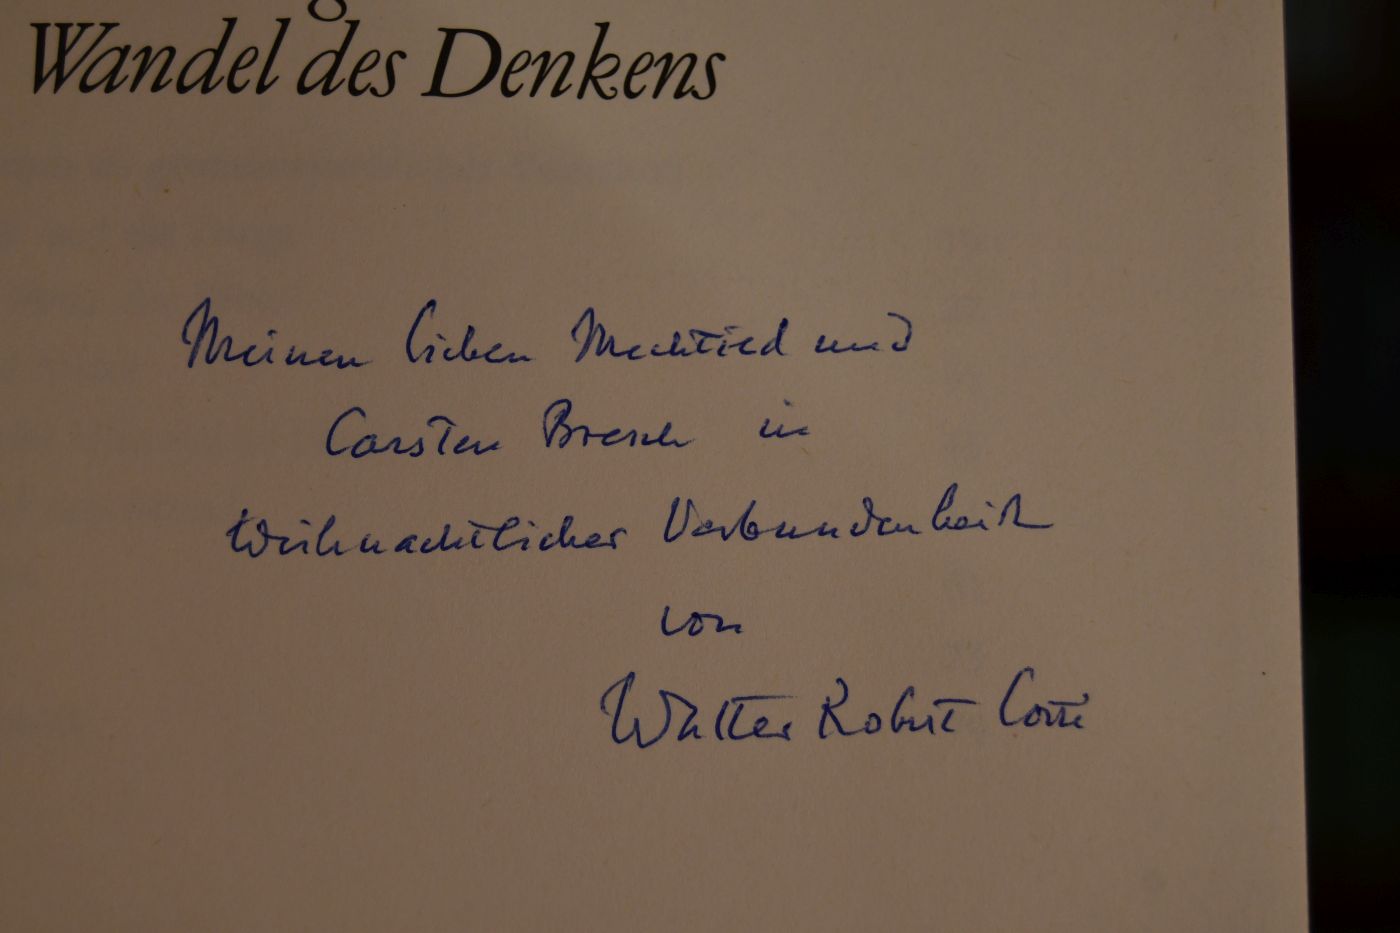 Wandel des Denkens
Meinen lieben Mechtied und
Carsten Bresch in
weihnachtlicher Verbundenheit
von
Walter Robert Corti